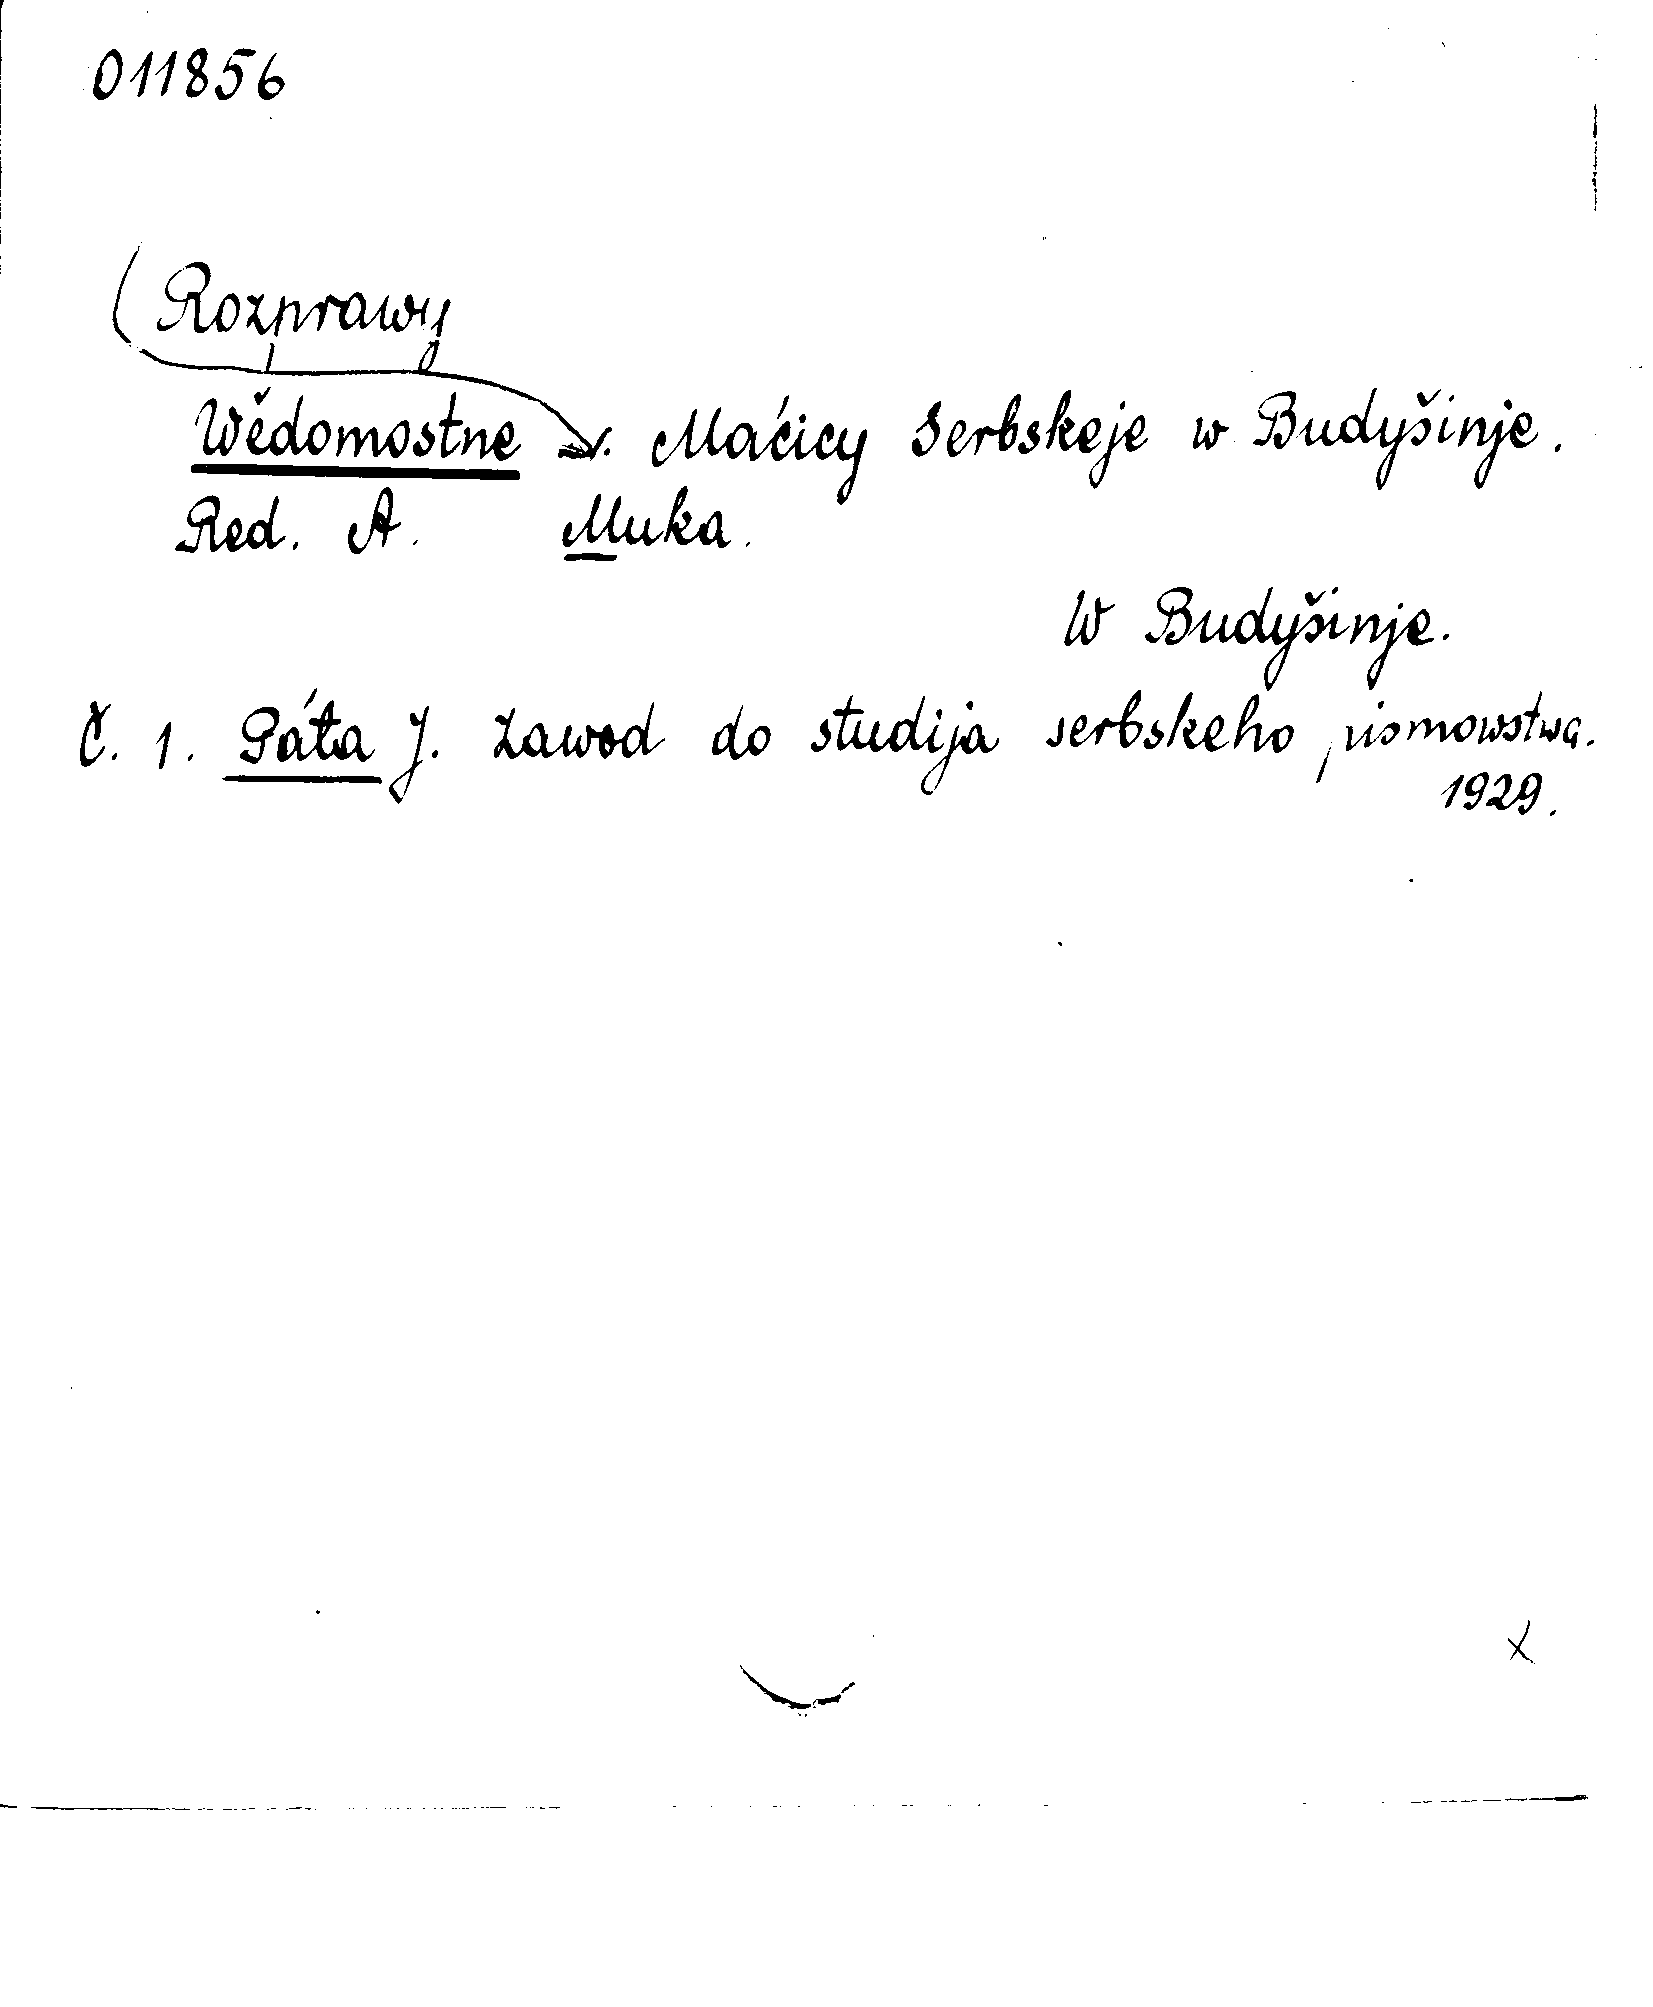 011856
Rozprawy
Wědomostne r. Maćicy Serbskeje w Budyšinje.
Red. A. Muka.
W Budyšinje.
Č. 1. Páta J. Zawod do studija serbskeho pismowstwa.
1929.
x